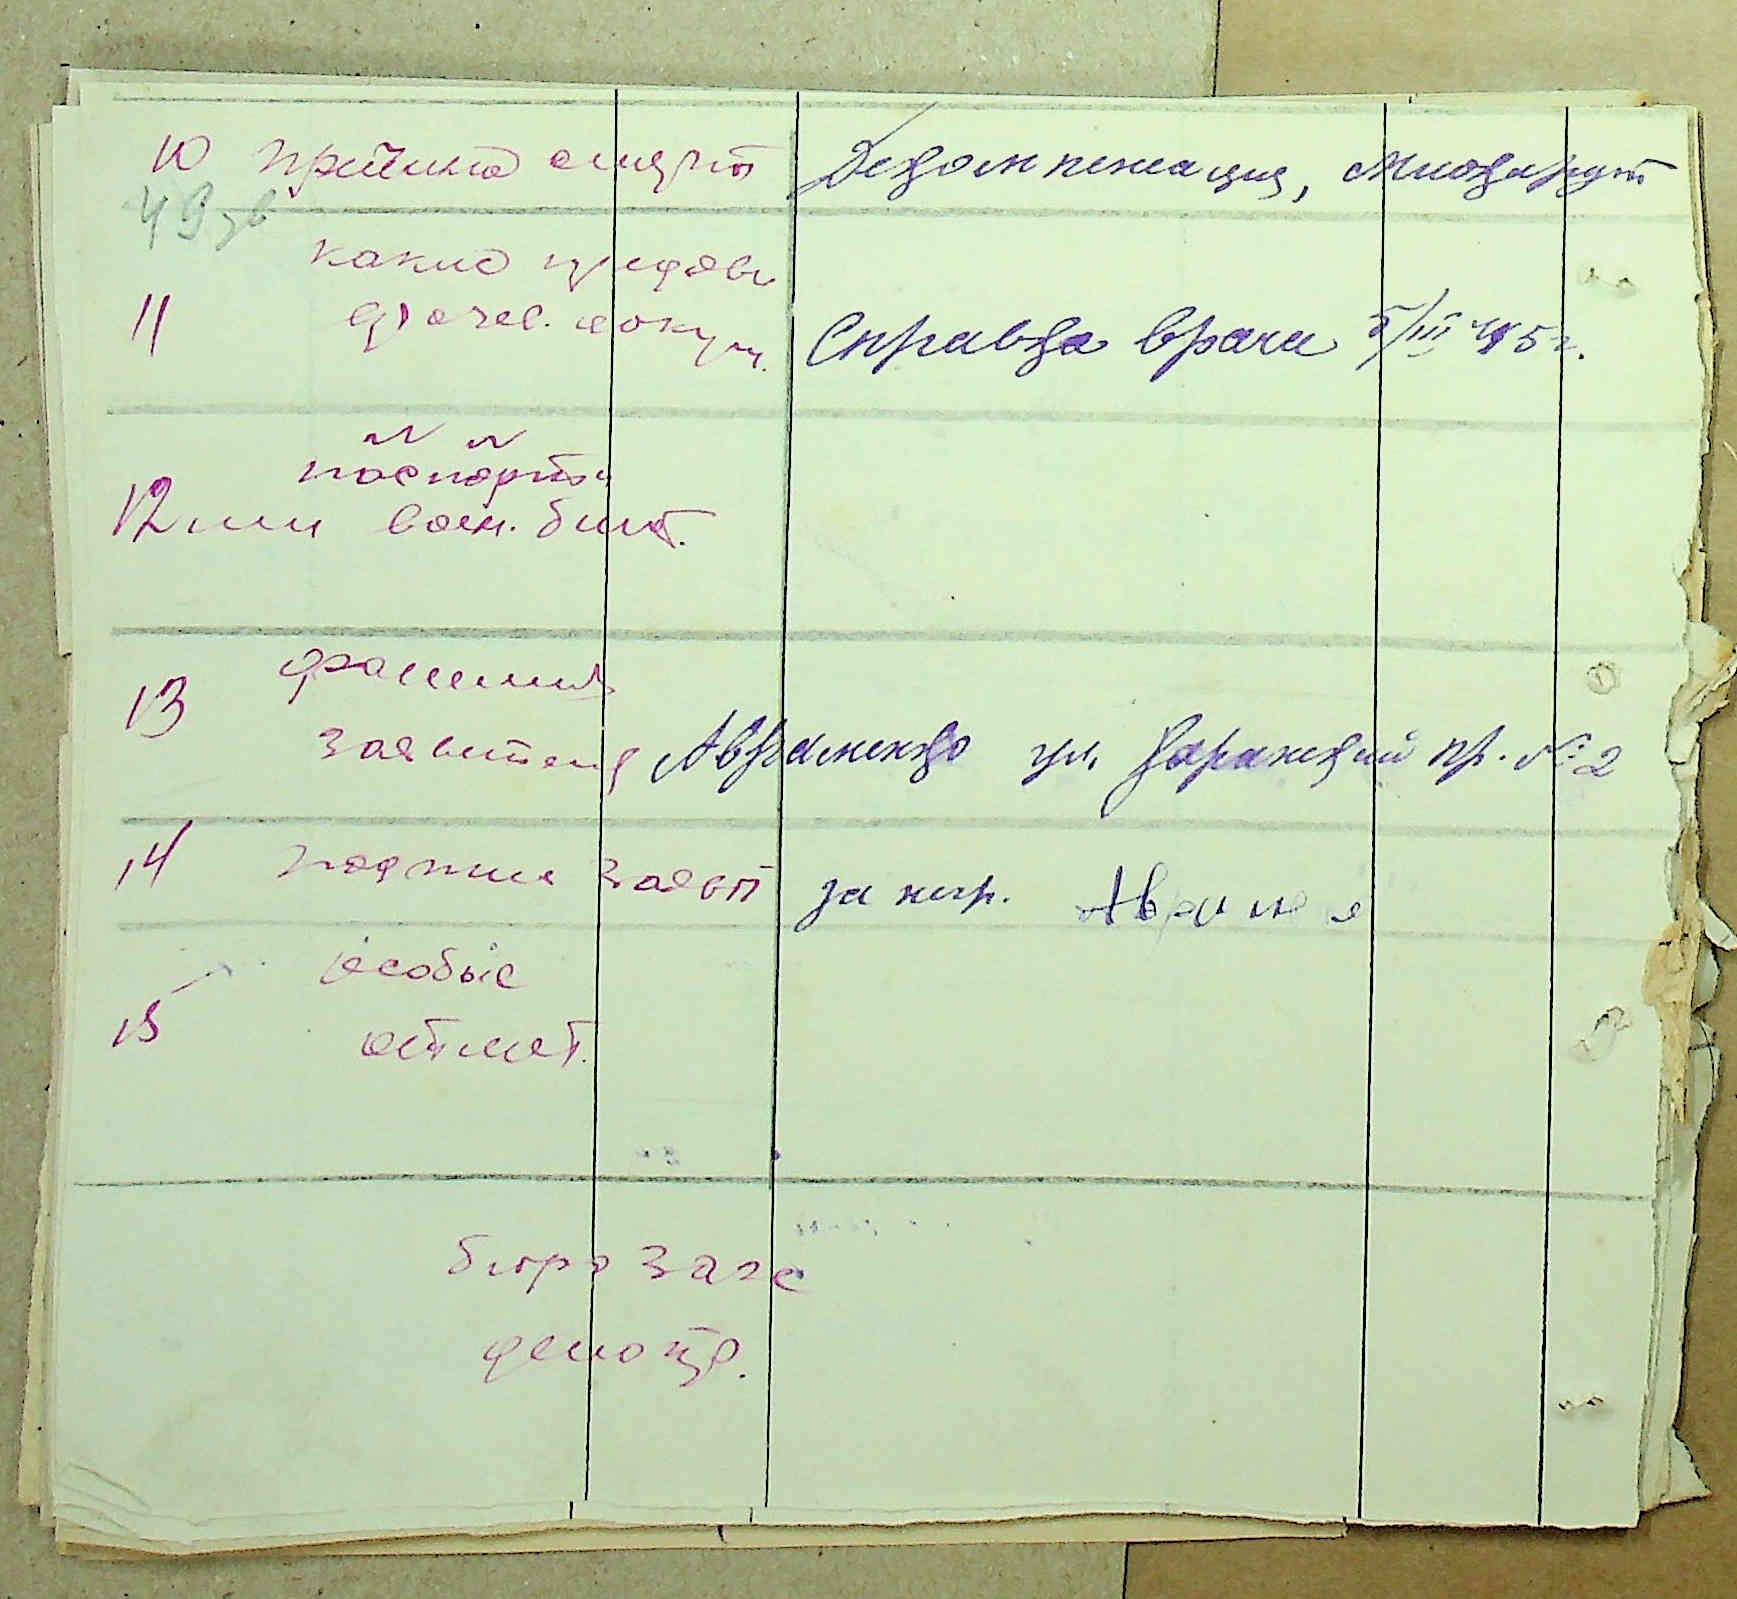 10 причина смерти Декомпенсация, Миокардит
49 зв
какие предъяв
11 врачеб. докум. Справка врача 5/III 45 г.
№ №
паспорта
12 или воен. билет.
13 фамилия
заявителя Авраменко ул. Каранский пр. № 2
14 подпись заявит за негр. Аврам
15 особые
отмет.
бюро загс
делопр.